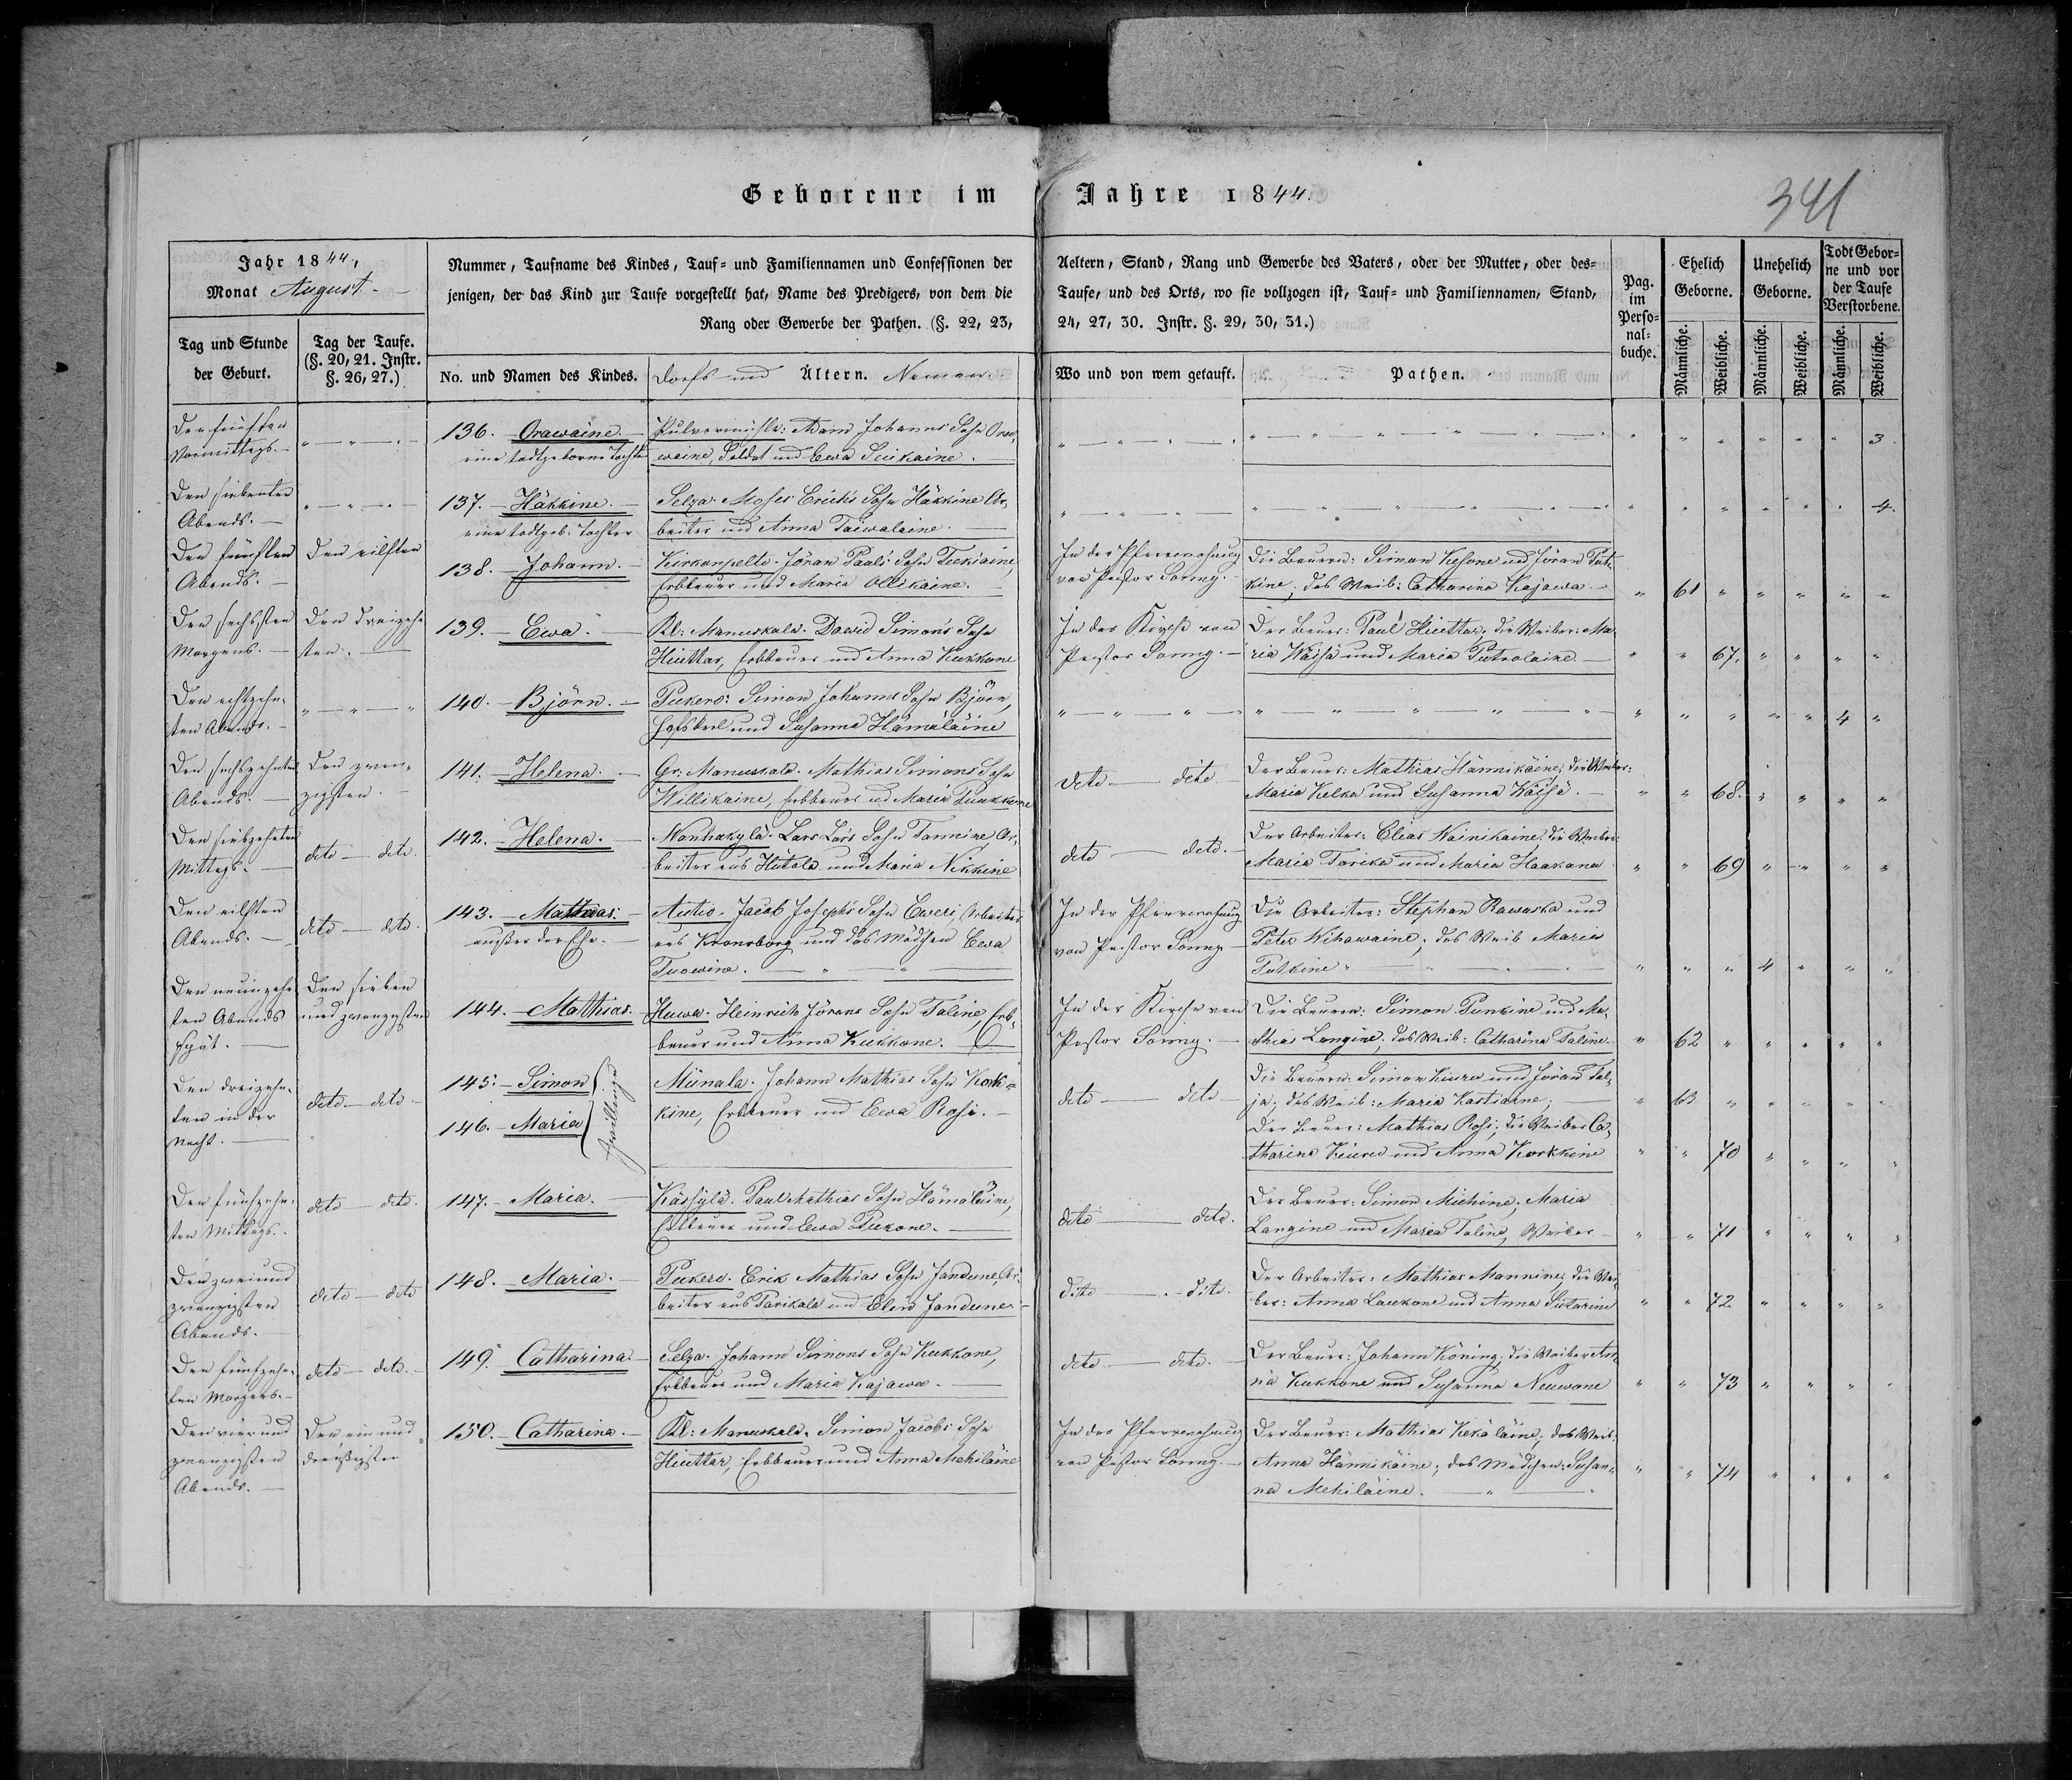 Geborene im Jahre 1844.
341
Jahr 1844,
Monat August.
Tag und Stunde der Geburt.
Tag der Taufe. (§. 20, 21. Instr. §. 26, 27.)
Nummer, Taufname des Kindes, Tauf- und Familiennamen und Confessionen der
jenigen, der das Kind zur Taufe vorgestellt hat, Name des Predigers, von dem die
Rang oder Gewerbe der Pathen. (§. 22, 23,
No. und Namen des Kindes.
Dorfs und Ältern. Namen.
Aeltern, Stand, Rang und Gewerbe des Vaters, oder der Mutter, oder des=
Taufe, und des Orts, wo sie vollzogen ist, Tauf- und Familiennamen, Stand,
24, 27, 30. Instr. §. 29, 30, 31.)
Wo und von wem getauft.
Pathen.
Pag. im Perso=nal=buche.
Ehelich Geborne.
Unehelich Geborne.
Todt Gebor=ne und vor der Taufe Verstorbene.
Männliche. Weibliche. Männliche. Weibliche. Männliche. Weibliche.
Den fünften
Vormittags.
136. Orawaine.
eine todtgeborne Tochter
Pulvermühle: Adam Johanns Sohn Ora,
waine, Soldat und Ewa Suikaine.
3.
Den siebenten
Abends.
137. Häkkine.
eine todtgeb: Tochter
Selza. Moses Erichs Sohn Häkkine Ar,
beiter und Anna Taiwalaine.
4.
Den fünften
Abends.
Den eilften
138. Johann.
Kirkonpelto. Jöran Pauls Sohn Teekiaine,
Erbbauer und Maria Ollikaine.
In der Pfarrwohnung
von Pastor Sonny.
Die Bauern: Simon Kesone und Jöran Put,
kine, das Weib: Catharina Kajawa.
61
Den sechsten
Morgens.
Den dreizehn
ten.
139. Ewa.
Kl: Manuskala. Dawid Simon's Sohn
Hiuttar, Erbbauer und Anna Kukkone
In der Kirche von
Pastor Sonny.
Der Bauer: Paul Hiuttar, die Weiber: Ma,
ria Wäisä und Maria Putrolaine.
67.
Den achtzehn,
ten Abends.
140. Björn.
Puikero: Simon Johanns Sohn Björn,
Hofskerl und Susanna Hämäläine
4
Den sechszehnten
Abends.
Den zwan,
zigsten.
141. Helena.
Gr: Manuskala. Mathias Simons Sohn
Willikaine, Erbbauer und Maria Tuukkone
deto deto
Der Bauer: Mathias Hännikäine, die Weiber:
Maria Kelka und Susanna Wäisä.
68.
Den siebzehnten
Mittags.
deto deto.
142. Helena.
Wanhakylä. Lars Lars Sohn Tannine Ar,
beiter aus Hiitola und Maria Nikkine
deto deto.
Der Arbeiter: Elias Wainikaine, die Weiber:
Maria Torikka und Maria Haakana
69
Den eilften
Abends.
deto deto.
143. Mathias.
ausser der Ehe.
Autio. Jacob Joseph's Sohn Eweri, Arbeiter
aus Kronoborg und das Mädchen Ewa
Tuowine.
In der Pfarrwohnung
von Pastor Sonny
Die Arbeiter: Stephan Rawaska und
Peter Wihawaine, das Weib Maria
Putkine
4
Den neunzehn
ten Abends
spät.
Den sieben
und zwanzigsten
144. Mathias.
Huwa. Heinrich Jörans Sohn Taline, Erb,
bauer und Anna Kukkone.
In der Kirche von
Pastor Sonny.
Die Bauern: Simon Punkine und Ma,
thias Langine, das Weib: Catharina Taline
62
Den dreizehn,
ten in der
Nacht.
deto deto.
145. Simon
146. Maria
Zwillinge
Miinala. Johann Mathias Sohn Kork=
kine, Erbbauer und Ewa Rosi.
deto deto
Die Bauern: Simon Kiuru und Jöran Tal,
ja, das Weib: Maria Kastiaine;
63
Der Bauer: Mathias Rosi, die Weiber Ca,
tharina Kiuru und Anna Korkkine
70
Den fünfzehn,
ten Mittags.
deto deto.
147. Maria.
Kässylä. Paul Mathias Sohn Hämäläine,
Erbbauer und Ewa Pukone.
deto deto.
Der Bauer: Simon Miehine, Maria
Langine und Maria Taline, Weiber
71
Den zweiund
zwanzigsten
Abends.
deto deto
148. Maria.
Puikero. Erik Mathias Sohn Jandune, Ar,
beiter aus Parikala und Elin Jandune
Dito dito.
Der Arbeiter: Mathias Mannine, die Wei,
ber: Anna Laukone und Anna Sutarine
72
Den fünfzehn,
ten Morgens.
deto deto.
149. Catharina
Selza. Johann Simons Sohn Kukkone,
Erbbauer und Maria Kajawa.
deto deto.
Der Bauer: Johann Köning, die Weiber An,
na Kukkone und Susanna Neuwone
73
Den vier und
zwanzigsten
Abends.
Den ein und
dreißigsten
150. Catharina.
Kl: Manuskala. Simon Jacobs Sohn
Hiuttar, Erbbauer und Anna Mehiläine
In der Pfarrwohnung
von Pastor Sonny.
Der Bauer: Mathias Kekäläine, das Weib:
Anna Hännikäine; das Mädchen: Susan,
na Mehiläine.
74